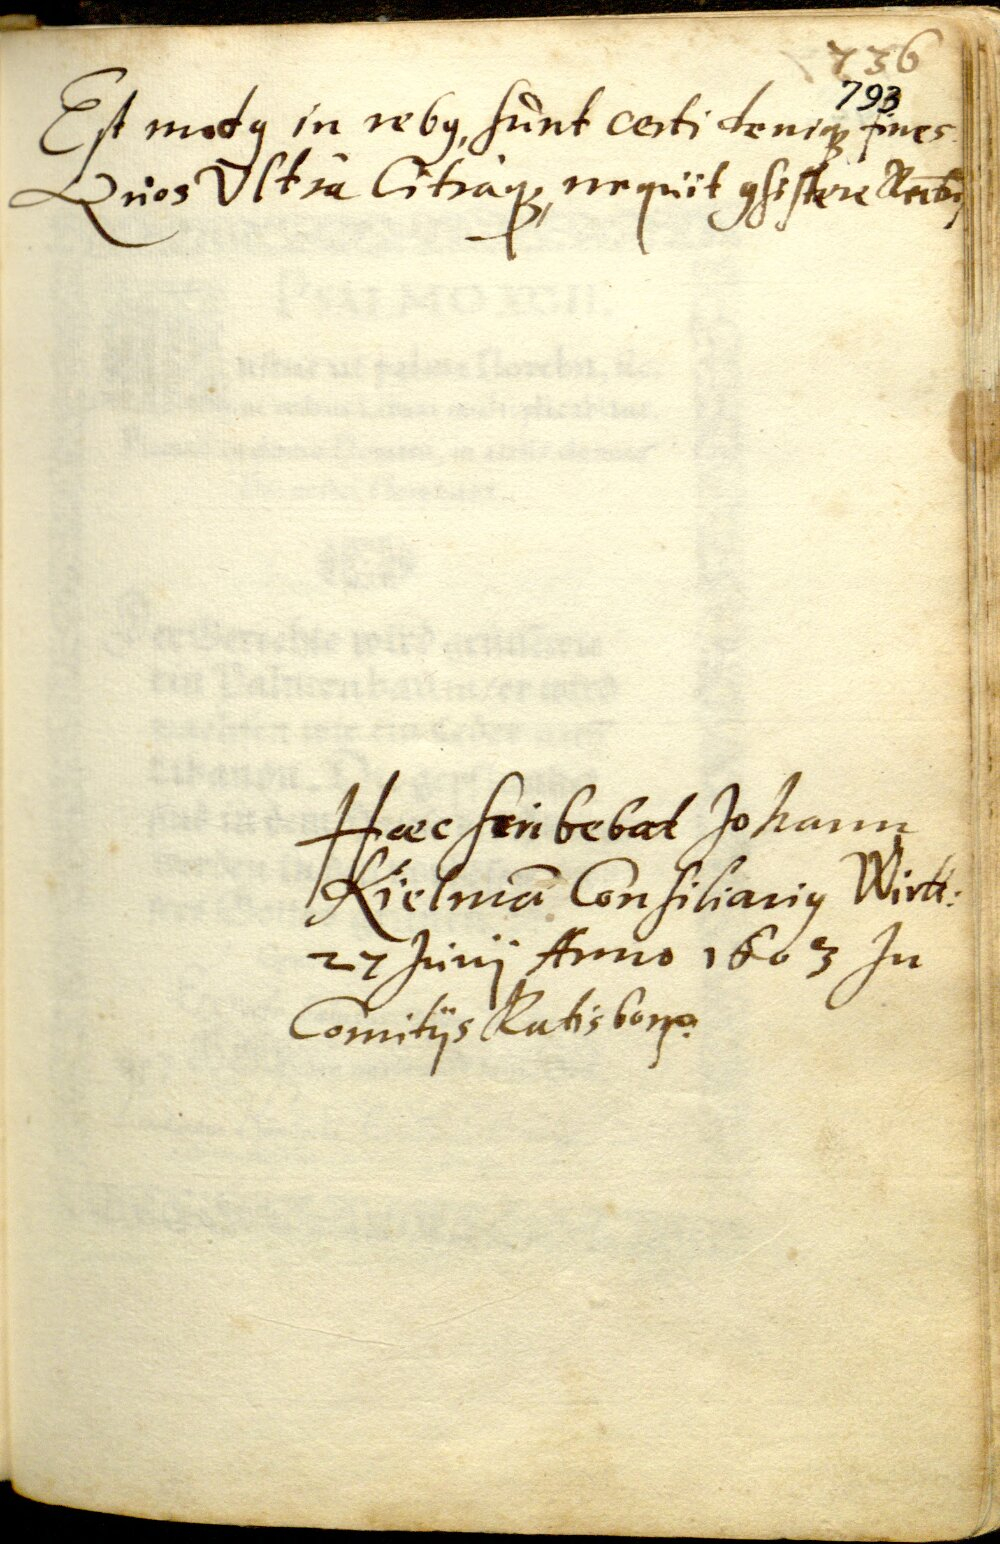 736
793
Est modꝯ in rebꝯ, sunt certi deniqꝫ fines
Quos Vltra Citraqꝫ, nequit ꝯsistere Rectũ
Haec scribebat Johann
Kielmã Consiliariꝯ Wirtt:
27 Junij Anno 1603 In
Comitijs Ratisbonę.
PSALMO XCII.